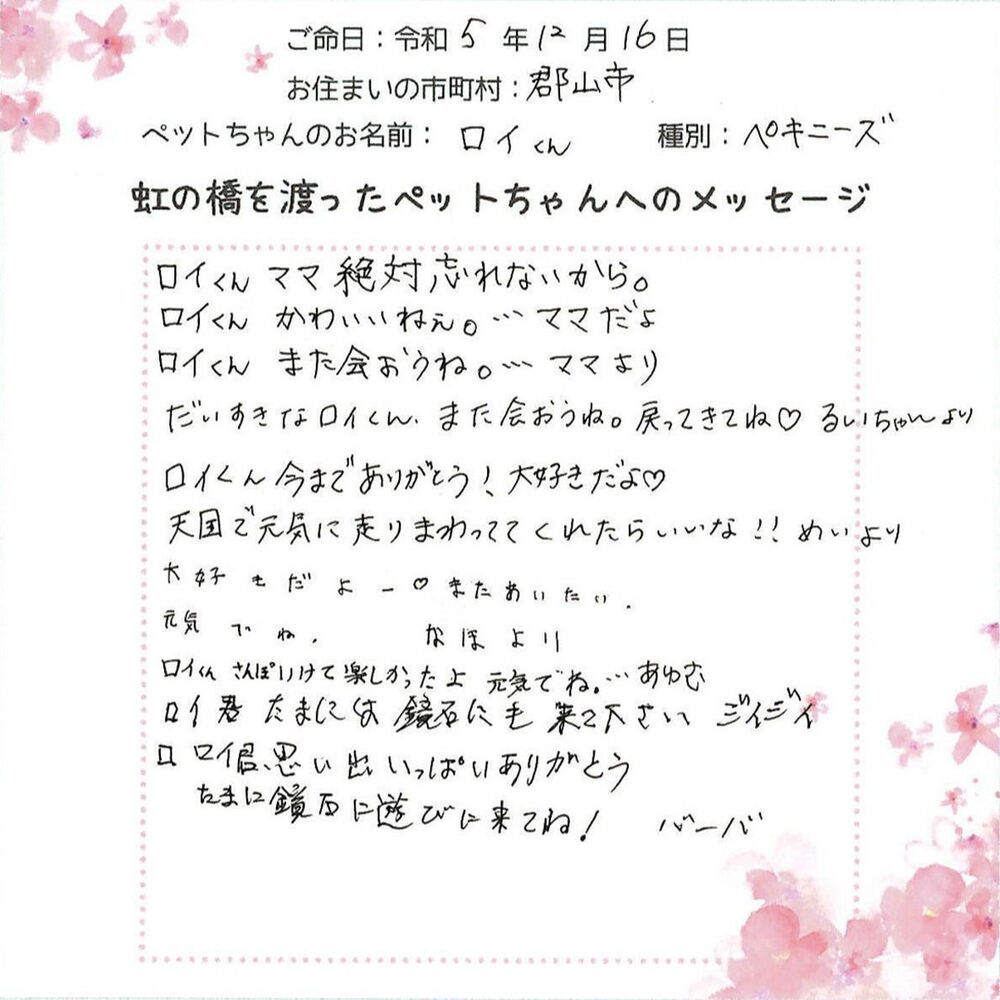 ご命日：令和 5 年 12 月 16 日
お住まいの市町村：郡山市
ペットちゃんのお名前： ロイくん 種別：ペキニーズ
虹の橋を渡ったペットちゃんへのメッセージ
ロイくん ママ 絶対忘れないから。
ロイくん かわいいねぇ。… ママだよ
ロイくん また会おうね。… ママより
だいすきなロイくん、また会おうね。戻ってきてね♡ るいちゃんより
ロイくん今までありがとう！大好きだよ♡
天国で元気に走りまわっててくれたらいいな!! めいより
大好きだよー♡またあいたい.
元気でね. なほより
ロイくん さんぽいけて楽しかったよ 元気でね。… あゆむ
ロイ君 たまには 鏡石にも 来て下さい ジイジイ
ロ ロイ君、思い出いっぱいありがとう
たまに鏡石に遊びに来てね！ バーバ